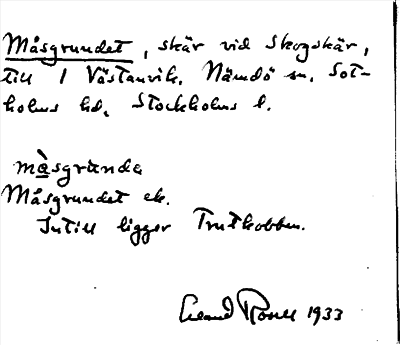 Måsgrundet, skär vid Skogskär,
till 1 Västanvik, Nämdö sn, Sot-
holms hd, Stockholms l.
måsgrunde
Måsgrundet ek.
Intill ligger Trutkobben.
1933